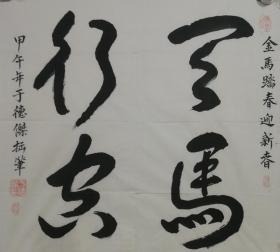 金馬踏春迎新春
天馬
行空
甲午年于德傑拙筆